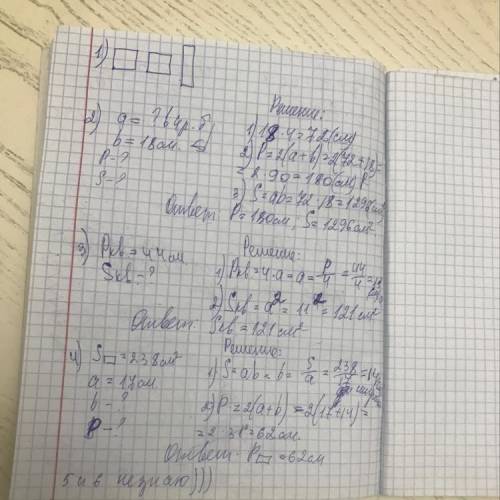 1)
2) a = ? в 4 р. б
b = 18 см
P - ?
S - ?
Решение:
1) 18 · 4 = 72 (см)
2) P = 2(a+b) = 2(72+18) =
= 2 · 90 = 180 (см) P
3) S = ab = 72 · 18 = 1296 см²
Ответ: P = 180 см, S = 1296 см²
3) Pкв = 44 см
Sкв = ?
Решение:
1) Pкв = 4 · a = a = P/4 = 44/4 = 11
2) Sкв = a² = 11² = 121 см²
Ответ: Sкв = 121 см²
4) S▭ = 238 см²
a = 17 см
b - ?
P - ?
Решение:
1) S = ab = b = S/a = 238/17 = 14
2) P = 2(a+b) = 2(17+14) =
= 2 · 31 = 62 см
Ответ: P▭ = 62 см
5 и 6 не знаю)))